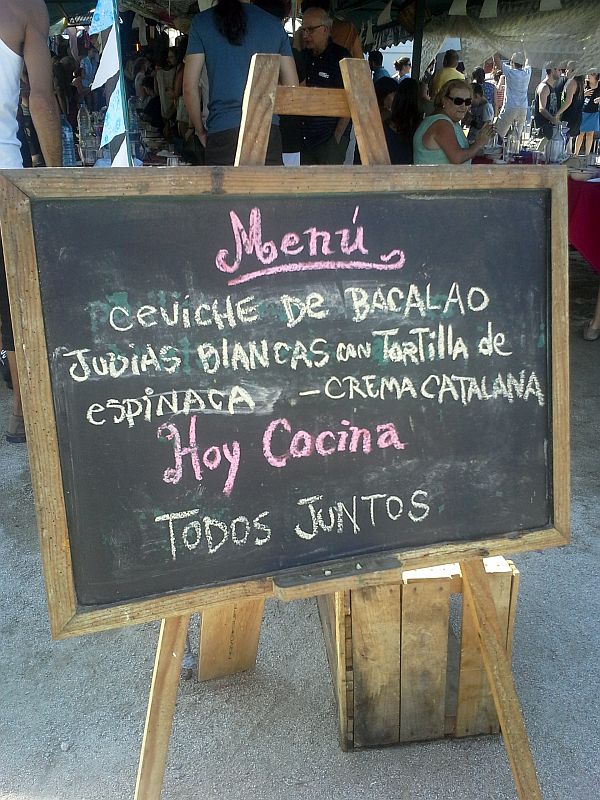 Menú
CEVICHE DE BACALAO
JUDIAS BLANCAS con TORTilla de
eSPINACA - CREMA CATALANA
Hoy Cocina
TODOS JUNTOS